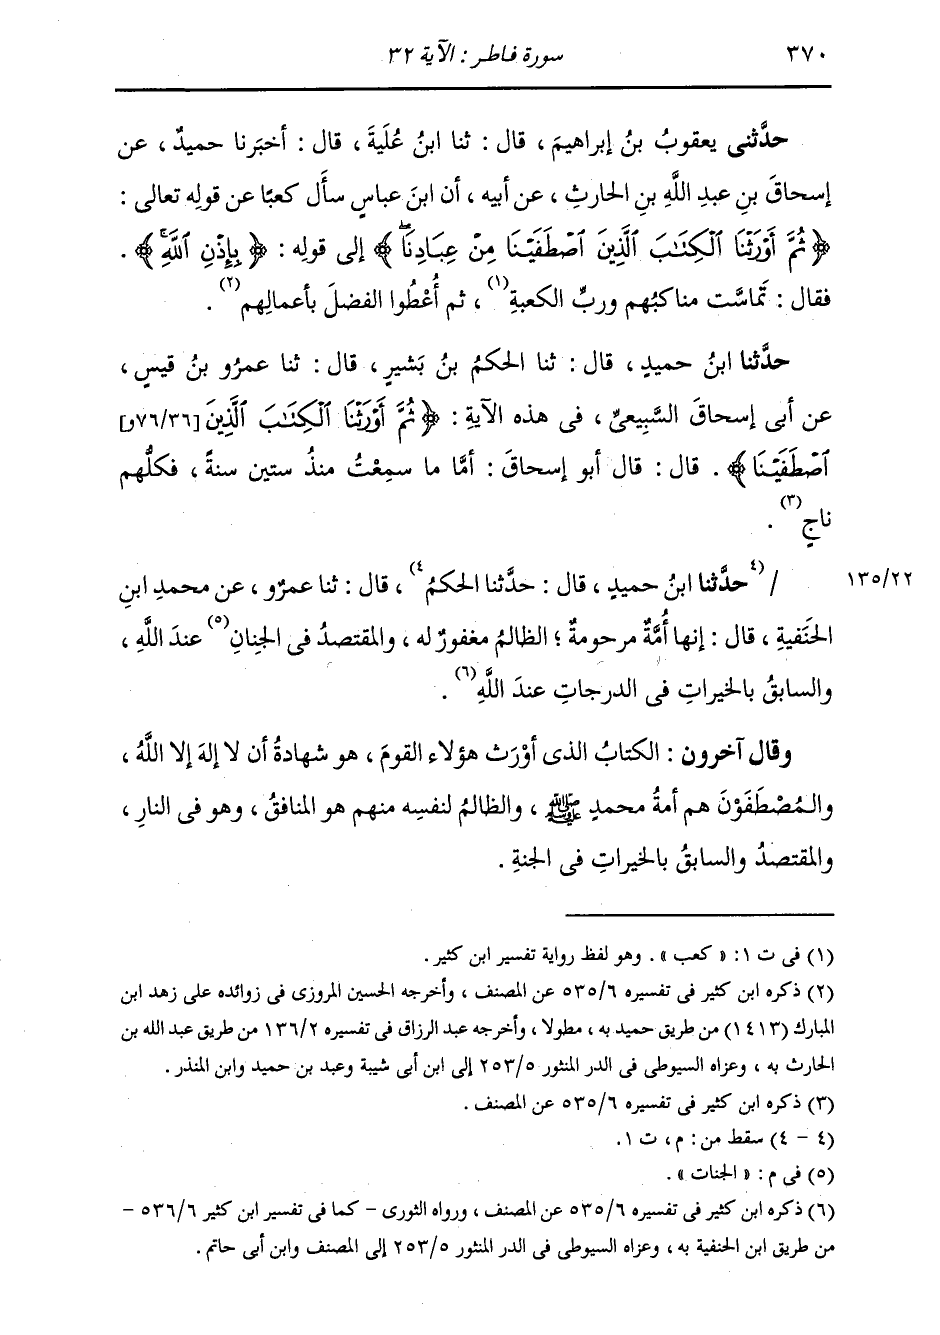 ٣٧٠ سورة فاطر : الآية ٣٢
حدَّثنى يعقوبُ بنُ إبراهيمَ ، قال : ثنا ابنُ عُلَيةَ ، قال : أخبَرنا حميدٌ ، عن
إسحاقَ بنِ عبدِ اللَّهِ بنِ الحارثِ ، عن أبيه ، أن ابنَ عباسٍ سأَل كعبًا عن قولِه تعالى :
﴿ ثُمَّ أَوْرَثْنَا ٱلْكِتَٰبَ ٱلَّذِينَ ٱصْطَفَيْنَا مِنْ عِبَادِنَاۖ ﴾ إلى قولِه : ﴿ بِإِذْنِ ٱللَّهِۚ ﴾ .
فقال : تَماسَّت مناكبُهم وربِّ الكعبةِ(١) ، ثم أُعْطُوا الفضلَ بأعمالِهم(٢) .
حدَّثنا ابنُ حميدٍ ، قال : ثنا الحكمُ بنُ بَشيرٍ ، قال : ثنا عمرُو بنُ قيسٍ ،
عن أبى إسحاقَ السَّبِيعىِّ ، فى هذه الآيةِ : ﴿ ثُمَّ أَوْرَثْنَا ٱلْكِتَٰبَ ٱلَّذِينَ [٧٦/٣٦و]
ٱصْطَفَيْنَا ﴾ . قال : قال أبو إسحاقَ : أمَّا ما سمِعْتُ منذُ ستين سنةً ، فكلُّهم
ناجٍ(٣) .
١٣٥/٢٢ / (٤حدَّثنا ابنُ حميدٍ ، قال : حدَّثنا الحكمُ٤) ، قال : ثنا عمرٌو ، عن محمدِ ابنِ
الحَنَفيةِ ، قال : إنها أُمَّةٌ مرحومةٌ ؛ الظالمُ مغفورٌ له ، والمقتصدُ فى الجِنانِ(٥) عندَ اللَّهِ ،
والسابقُ بالخيراتِ فى الدرجاتِ عندَ اللَّهِ(٦) .
وقال آخرون : الكتابُ الذى أوْرَث هؤلاء القومَ ، هو شهادةُ أن لا إلهَ إلا اللَّهُ ،
والمُصْطَفَوْنَ هم أمةُ محمدٍ ﷺ ، والظالمُ لنفسِه منهم هو المنافقُ ، وهو فى النارِ ،
والمقتصدُ والسابقُ بالخيراتِ فى الجنةِ .
(١) فى ت ١: « كعب » . وهو لفظ رواية تفسير ابن كثير .
(٢) ذكره ابن كثير فى تفسيره ٥٣٥/٦ عن المصنف ، وأخرجه الحسين المروزى فى زوائده على زهد ابن
المبارك (١٤١٣) من طريق حميد به ، مطولا ، وأخرجه عبد الرزاق فى تفسيره ١٣٦/٢ من طريق عبد الله بن
الحارث به ، وعزاه السيوطى فى الدر المنثور ٢٥٣/٥ إلى ابن أبى شيبة وعبد بن حميد وابن المنذر .
(٣) ذكره ابن كثير فى تفسيره ٥٣٥/٦ عن المصنف .
(٤ - ٤) سقط من : م ، ت ١.
(٥) فى م : « الجنات » .
(٦) ذكره ابن كثير فى تفسيره ٥٣٥/٦ عن المصنف ، ورواه الثورى - كما فى تفسير ابن كثير ٥٣٦/٦ -
من طريق ابن الحنفية به ، وعزاه السيوطى فى الدر المنثور ٢٥٣/٥ إلى المصنف وابن أبى حاتم .